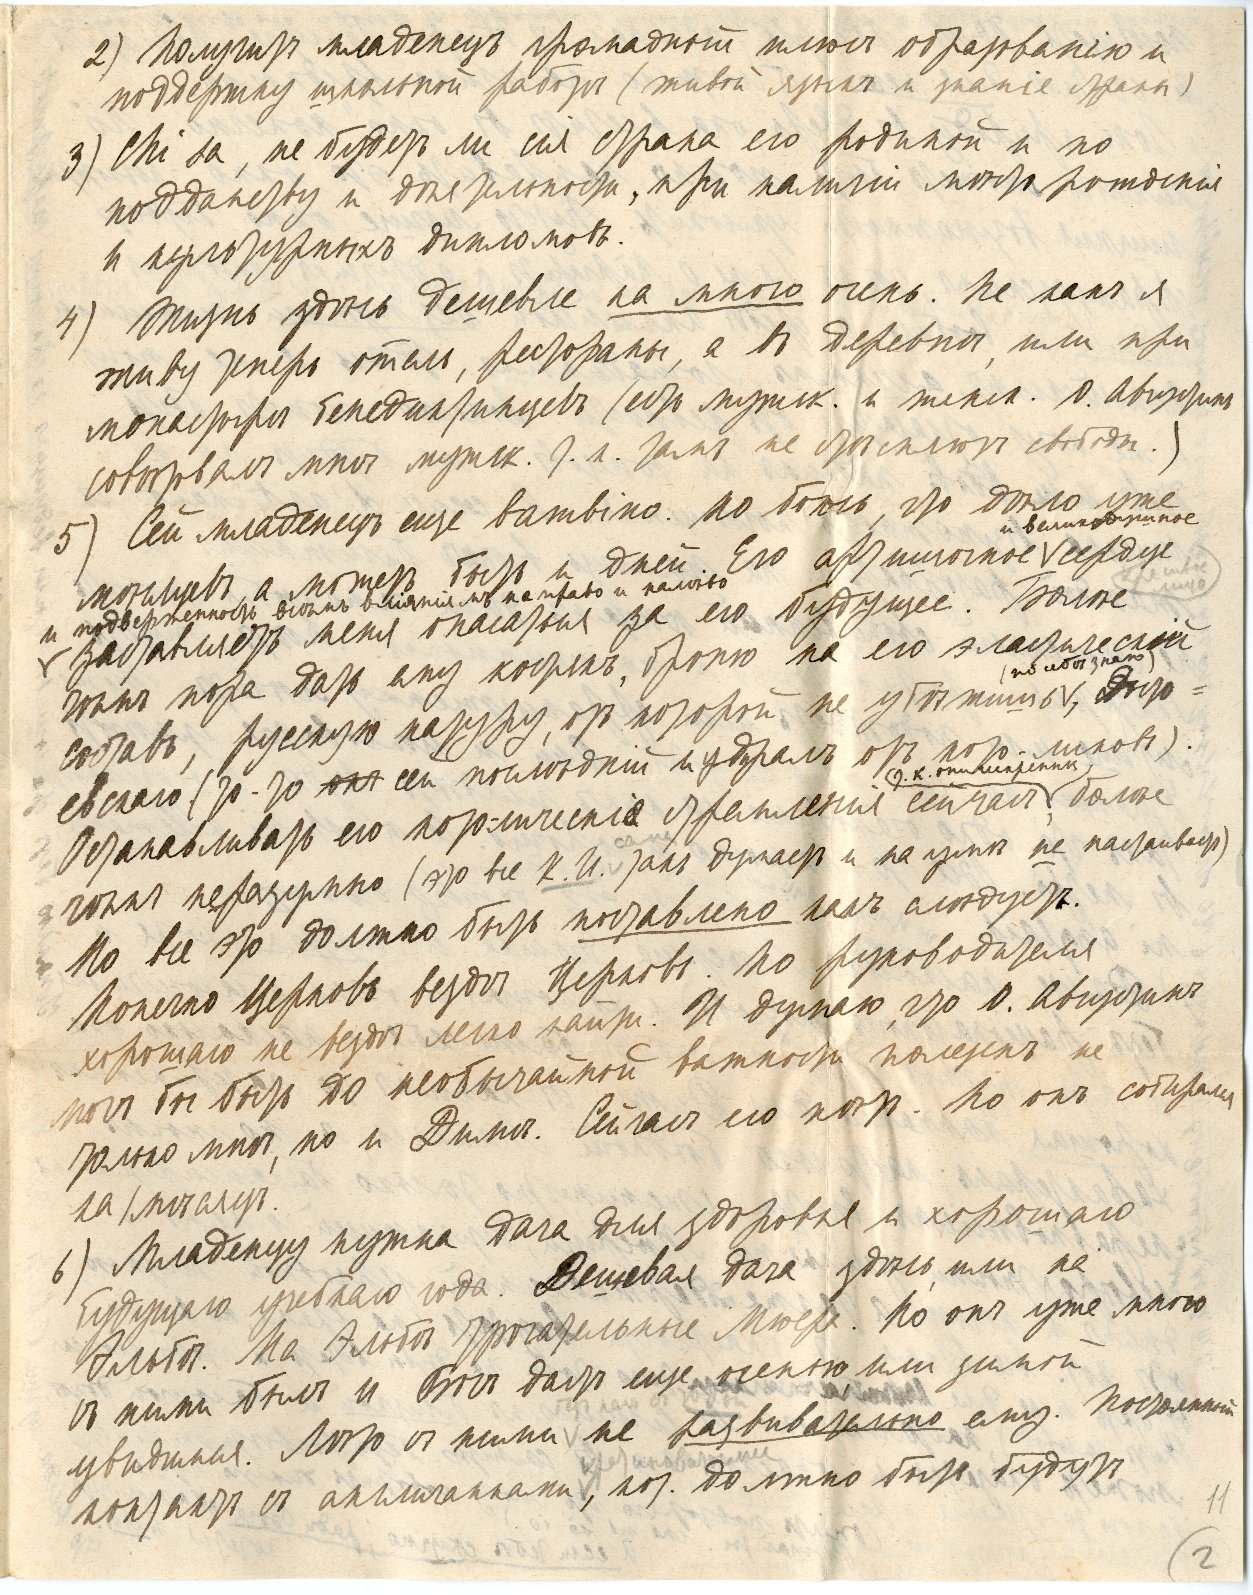 2) Получитъ младенецъ громадный плюсъ образованію и
поддержку школьной работы (живой языкъ и знаніе страны)
3) Chi sa, не будетъ ли сія страна его родиной и по
подданству и дѣятельности, при наличіи мѣста рожденія
и культурныхъ дипломовъ.
4) Жизнь здѣсь дешевле на много очень. Не какъ я
живу теперь отель, рестораны, а въ деревнѣ, или при
монастырѣ бенедиктинцевъ (есть мужск. и женск. О. Августинъ
совѣтовалъ мнѣ мужск. т. к. тамъ не стѣсняютъ свободы.)
5) Сей младенецъ еще bambino. Но боюсь, что дѣло уже
мѣсяцевъ, а можетъ быть и дней. Его артистичное и великодушное сердце
и подверженность всѣмъ вліяніямъ направо и налѣво
заставляетъ меня опасаться за его будущее. Болѣе
чѣмъ пора дать ему костякъ, броню на его эластическій
составъ, русскую натуру, отъ которой не убѣжишь (по себѣ знаю), Досто=
евскаго (что-то сей послѣдній издралъ отъ кор. листовъ).
Останавливать его поэтическіе стремленія сейчасъ (т. к. оптимистики) болѣе
чѣмъ неразумно (это все К. И. такъ думаетъ и на умъ не наставляетъ)
Но все это должно быть поставлено какъ слѣдуетъ.
Конечно Церковь вездѣ Церковь. Но руководителя
хорошаго не вездѣ легко найти. И думаю, что О. Августинъ
могъ бы быть до необычайной важности полезенъ не
только мнѣ, но и Димѣ. Сейчасъ его нѣтъ. Но онъ собирался
на / мѣсяцъ.
6) Младенцу нужна дача для здоровья и хорошаго
будущаго учебнаго года. Дешевая дача здѣсь, или на
Эльбѣ. На Эльбѣ трогательные Мюеръ. Но онъ уже много
съ ними былъ и Богъ дастъ еще осенью, или зимой
увидимся. Лѣто съ ними не развивательно ему. Постоянный
контактъ съ англичанками, кот. должно быть будутъ
11
(2